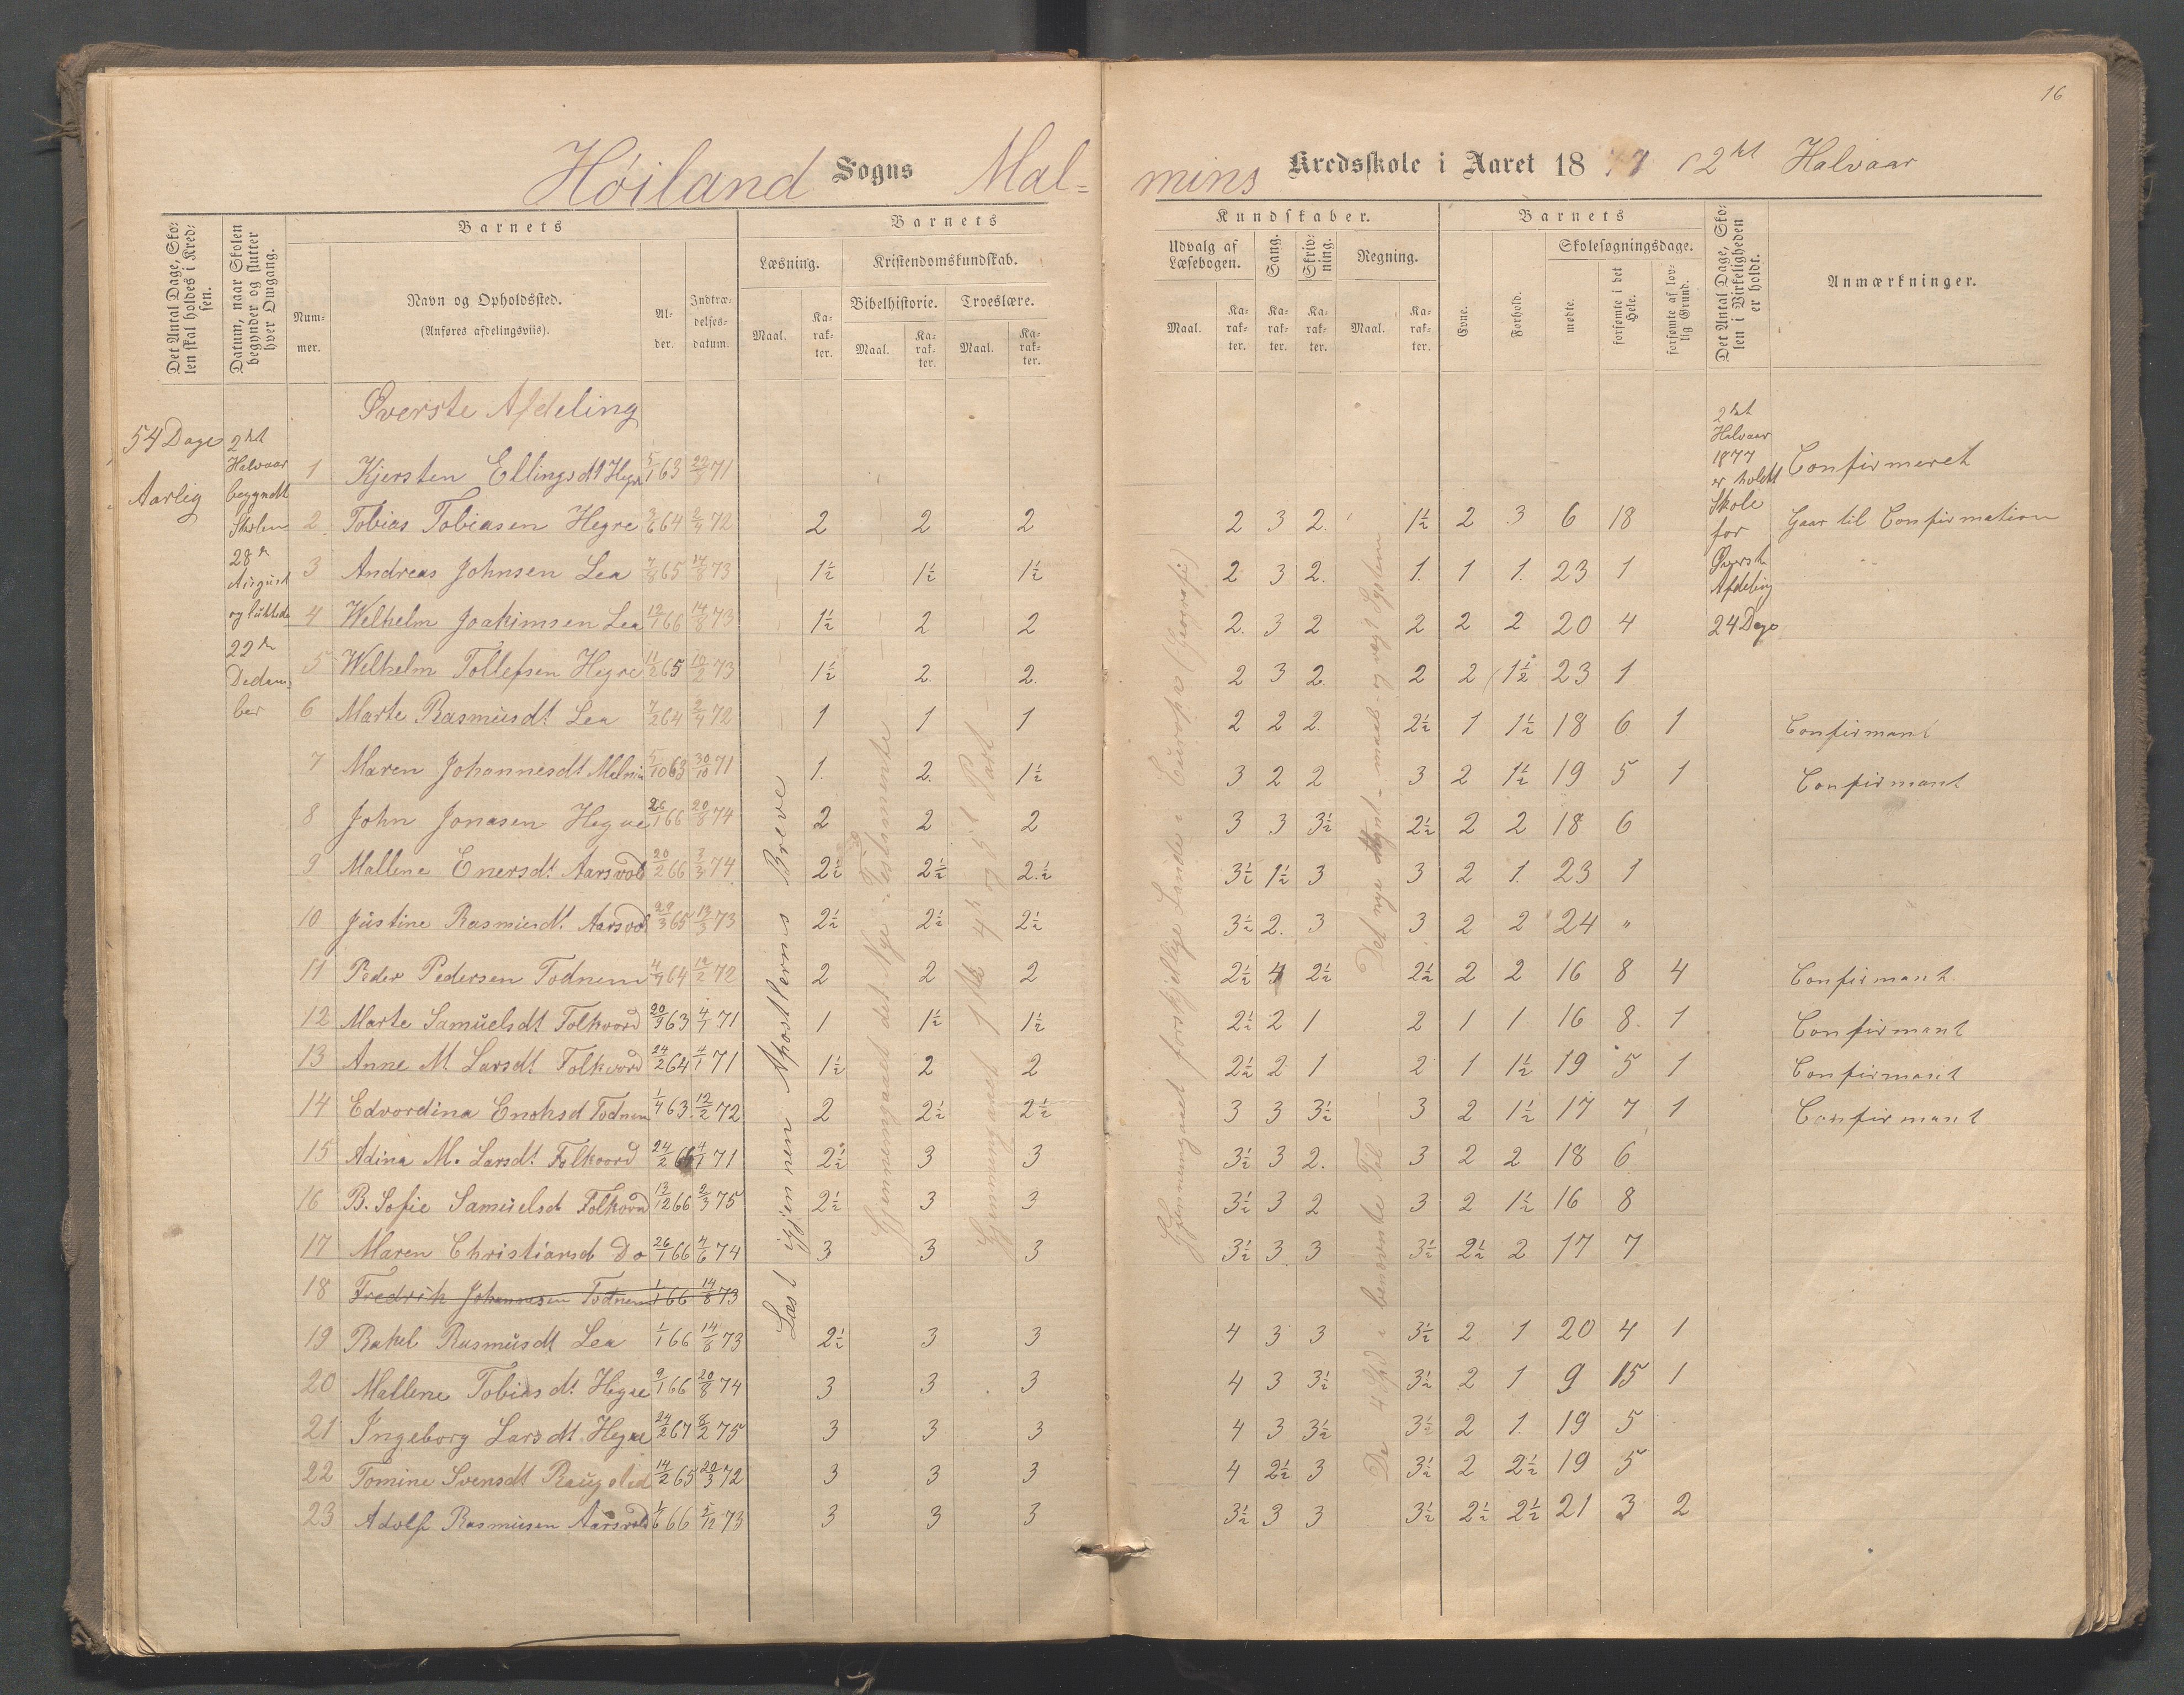 16
Høiland Sogns Mal=
mins Kredsskole i Aaret 1877 2det Halvaar
Det Antal Dage, Skolen skal holdes i Kredsen.
Datum, naar Skolen begynder og slutter hver Omgang.
Barnets
Nummer.
Navn og Opholdssted.
(Anføres afdelingsviis).
Alder.
Indtrædelsesdatum.
Barnets
Læsning.
Kristendomskundskab.
Bibelhistorie. Troeslære.
Maal. Karakter. Maal. Karakter. Maal. Karakter.
Kundskaber.
Udvalg af Læsebogen. Sang. Skrivning. Regning.
Maal. Karakter. Karakter. Karakter. Maal. Karakter.
Barnets
Evne. Forhold.
Skolesøgningsdage.
mødte. forsømte i det Hele. forsømte af lovlig Grund.
Det Antal Dage, Skolen i Virkeligheden er holdt.
Anmærkninger.
54 Dage
Aarlig
2det
Halvaar
begyndt
Skolen
28de
August
og luttede
22de
Dedem=
ber
Øverste Afdeling
1 Kjersten Ellingsdt Hegre 5/1 63 22/8 71 Confirmeret
2 Tobias Tobiasen Hegre 3/6 64 2/4 72 2 2 2 2 3 2. 1½ 2 3 6 18 Gaar til Confirmation
3 Andreas Johnsen Lea 7/8 65 14/8 73 1½ 1½ 1½ 2 3 2. 1. 1 1. 23 1
4 Welhelm Joakimsen Lea 12/1 66 14/8 73 1½ 2 2 2. 3 2 2 2 2 20 4
5 Welhelm Tollefsen Hegre 11/2 65 10/2 73 1½ 2. 2. 2 3 2. 2 2 1½ 23 1
6 Marte Rasmusdt Lea 7/2 64 2/4 72 1 1 1 2 2 2. 2½ 1 1½ 18 6 1 Confirmant
7 Maren Johannesdt Malmin 5/10 63 30/10 71 1. 2. 1½ 3 2 2 3 2 1½ 19 5 1 Confirmant
8 John Jonasen Hegre 26/1 66 20/8 74 2 2 2 3 3 3½ 2½ 2 2 18 6
9 Mallene Enersdt Aarsvold 20/2 66 3/3 74 2½ 2½ 2.½ 3½ 1½ 3 3 2 1. 23 1
10 Justine Rasmusdt Aarsvold 29/3 65 13/3 73 2½ 2½ 2½ 3½ 2. 3 3 2 2 24 "
11 Peder Pedersen Todnem 4/9 64 12/2 72 2 2 2 2½ 4 2½ 2½ 2 2 16 8 4 Confirmant
12 Marte Samuelsdt Folkvord 20/9 63 4/1 71 1 1½ 1½ 2½ 2 1 2 1 1 16 8. 1 Confirmant
13 Anne M Larsdt Folkvord 24/2 64 4/1 71 1½ 2 2 2½ 2 1 2 1 1½ 19 5 1 Confirmant
14 Edvordina Enohsd Todnem 1/4 63 12/2 72 2 2½ 2½ 3 3 3½ 3 2 1½ 17 7 1 Confirmant
15 Adina M. Larsdt Folkvord 24/2 66 4/1 71 2½ 3 3 3½ 3 2. 3 2 2 18 6
16 B. Sofie Samuelsd Folkvord 13/12 66 2/3 75 2½ 3 3 3½ 3 2 3 2 1½ 16 8
17 Maren Christiansd Do 26/1 66 4/6 74 3 3 3 3½ 3 3 3½ 2½ 2 17 7
18 Fredrik Johannesen Todnem 1/1 66 14/8 73
19 Rakel Rasmusdt Lea 1/1 66 14/8 73 2½ 3 3 4 3 3 3½ 2 1 20 4 1
20 Mallene Tobiasdt Hegre 9/1 66 20/8 74 3 3 3 4 3 3½ 3½ 2 1 9 15 1
21 Ingeborg Larsdt Hegre 24/2 67 8/2 75 3 3 3 4 3 3½ 3½ 2 1. 19 5
22 Tomine Svensdt 14/2 65 20/3 72 3 3 3 4 2½ 3 3½ 2 2½ 19 5
23 Adolf Rasmusen Aarsvold 1/6 66 5/12 73 3 3 3 3½ 3 3 3½ 2½ 2½ 21 3 2
Læst igjennen Apostlerns Breve
Gjennemgaaed det Nye Testamente
Gjennemgaaet 1ste 4de og 5t Part
Gjennemgaaet forskjellige Lande i Europa (Geografi)
De 4 Sp. i benævnte Tal — Det nye Mynt- maal- og vægt System
2det
Halvaar
1877
er holdt
Skole
for
Øverste
Afdeling
24 Dage